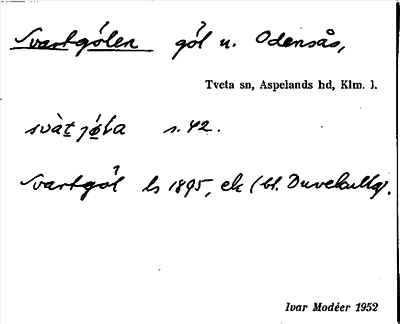 Svartgölen göl u. Odensås,
Tveta sn, Aspelands hd, Klm. l.
svàt jø̀la s. 42.
Svartgöl ls 1895, ek (bl. Duvekulla).
Ivar Modéer 1952